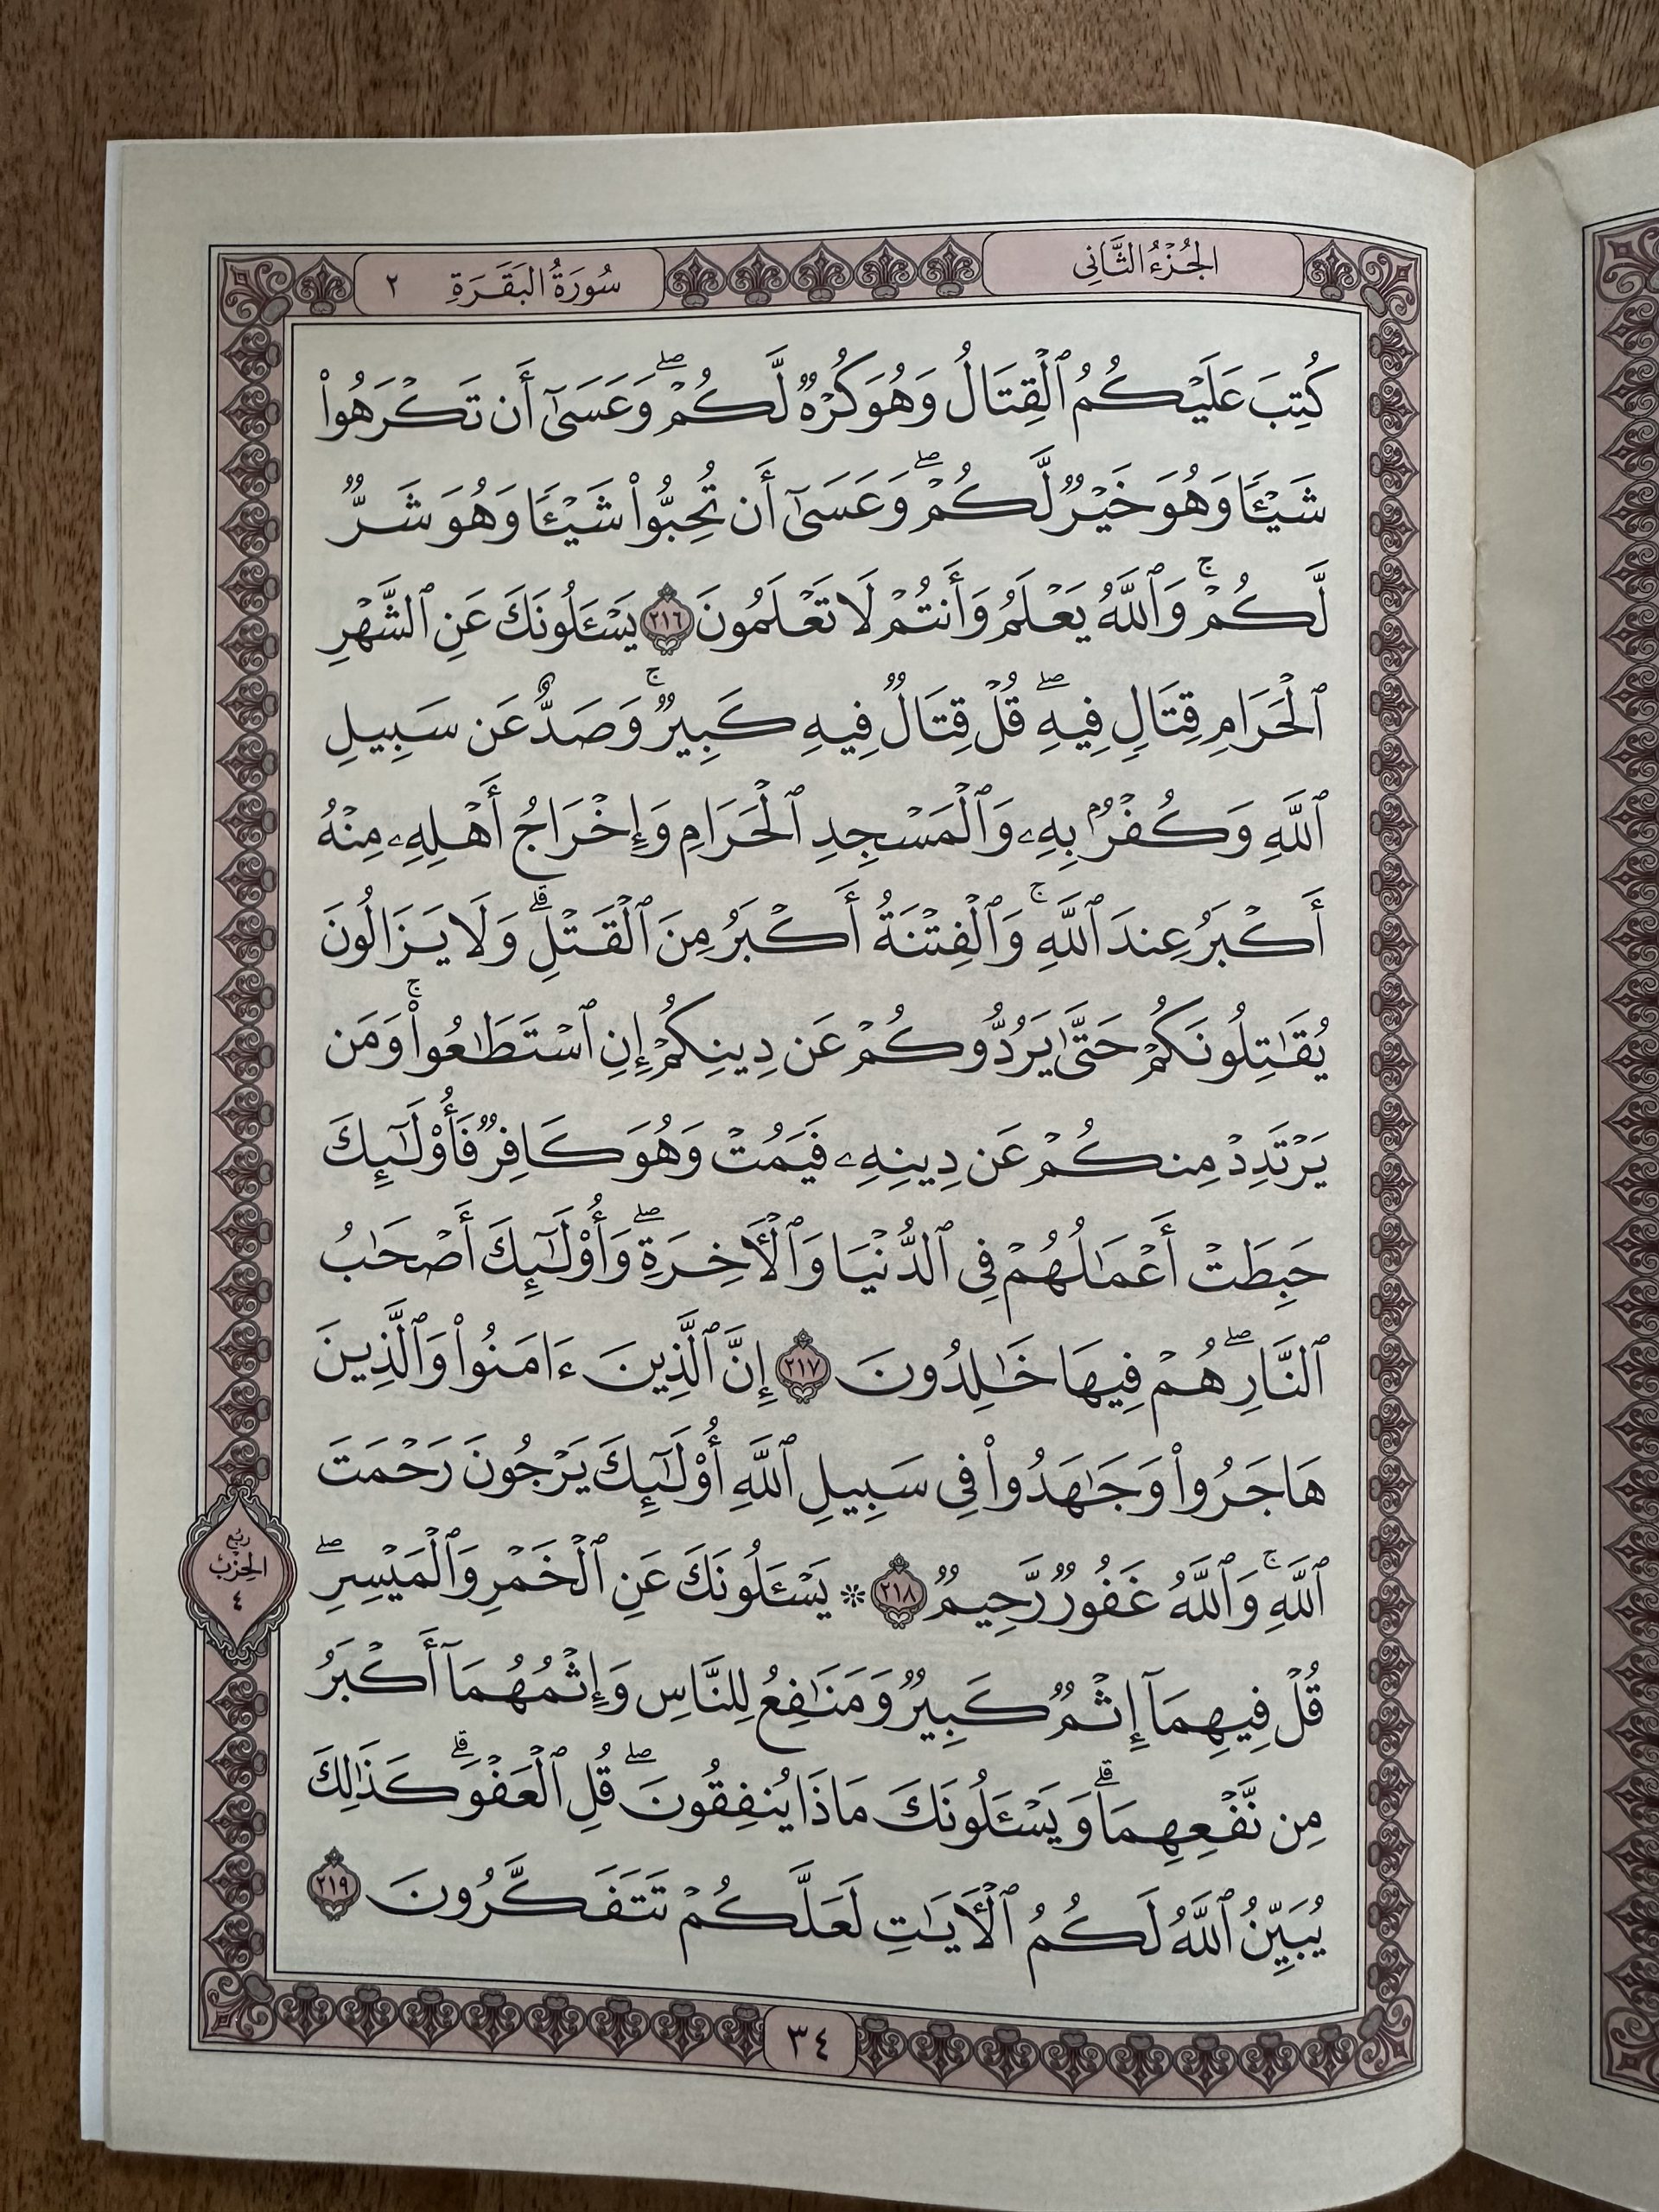 الجُزْءُ الثَّانِي
سُورَةُ البَقَرَةِ ٢
كُتِبَ عَلَيْكُمُ ٱلْقِتَالُ وَهُوَ كُرْهٌ لَّكُمْ ۖ وَعَسَىٰٓ أَن تَكْرَهُوا۟
شَيْـًٔا وَهُوَ خَيْرٌ لَّكُمْ ۖ وَعَسَىٰٓ أَن تُحِبُّوا۟ شَيْـًٔا وَهُوَ شَرٌّ
لَّكُمْ ۚ وَٱللَّهُ يَعْلَمُ وَأَنتُمْ لَا تَعْلَمُونَ ٢١٦ يَسْـَٔلُونَكَ عَنِ ٱلشَّهْرِ
ٱلْحَرَامِ قِتَالٍ فِيهِ ۖ قُلْ قِتَالٌ فِيهِ كَبِيرٌ ۚ وَصَدٌّ عَن سَبِيلِ
ٱللَّهِ وَكُفْرٌۢ بِهِۦ وَٱلْمَسْجِدِ ٱلْحَرَامِ وَإِخْرَاجُ أَهْلِهِۦ مِنْهُ
أَكْبَرُ عِندَ ٱللَّهِ ۚ وَٱلْفِتْنَةُ أَكْبَرُ مِنَ ٱلْقَتْلِ ۗ وَلَا يَزَالُونَ
يُقَـٰتِلُونَكُمْ حَتَّىٰ يَرُدُّوكُمْ عَن دِينِكُمْ إِنِ ٱسْتَطَـٰعُوا۟ ۚ وَمَن
يَرْتَدِدْ مِنكُمْ عَن دِينِهِۦ فَيَمُتْ وَهُوَ كَافِرٌ فَأُو۟لَـٰٓئِكَ
حَبِطَتْ أَعْمَـٰلُهُمْ فِى ٱلدُّنْيَا وَٱلْـَٔاخِرَةِ ۖ وَأُو۟لَـٰٓئِكَ أَصْحَـٰبُ
ٱلنَّارِ ۖ هُمْ فِيهَا خَـٰلِدُونَ ٢١٧ إِنَّ ٱلَّذِينَ ءَامَنُوا۟ وَٱلَّذِينَ
هَاجَرُوا۟ وَجَـٰهَدُوا۟ فِى سَبِيلِ ٱللَّهِ أُو۟لَـٰٓئِكَ يَرْجُونَ رَحْمَتَ
ٱللَّهِ ۚ وَٱللَّهُ غَفُورٌ رَّحِيمٌ ٢١٨ ۞ يَسْـَٔلُونَكَ عَنِ ٱلْخَمْرِ وَٱلْمَيْسِرِ ۖ
رُبْعُ
الحِزْبِ
٤
قُلْ فِيهِمَآ إِثْمٌ كَبِيرٌ وَمَنَـٰفِعُ لِلنَّاسِ وَإِثْمُهُمَآ أَكْبَرُ
مِن نَّفْعِهِمَا ۗ وَيَسْـَٔلُونَكَ مَاذَا يُنفِقُونَ ۖ قُلِ ٱلْعَفْوَ ۗ كَذَٰلِكَ
يُبَيِّنُ ٱللَّهُ لَكُمُ ٱلْـَٔايَـٰتِ لَعَلَّكُمْ تَتَفَكَّرُونَ ٢١٩
٣٤